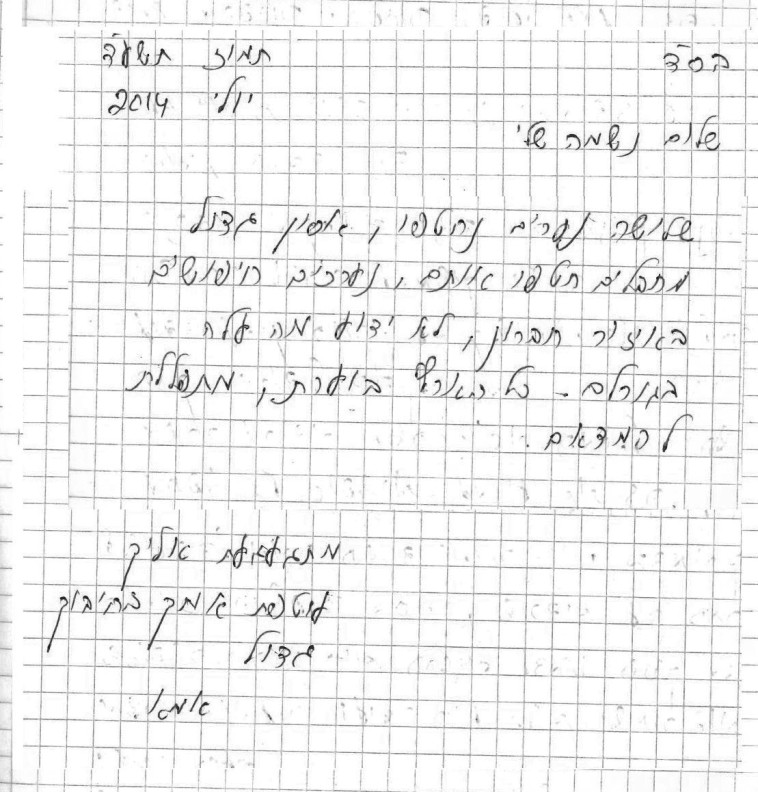 בס"ד תמוז תשע"ד
יולי 2014
שלום נשמה שלי
שלושה נערים נחטפו, אסון גדול
מחבלים חטפו אותם, נערכים חיפושים
באיזור חברון, לא ידוע מה עלה
בגורלם - כל הארץ בוערת, מתפללת
מתגעגעת אליך
עוטפת אותך בחיבוק
גדול
אמא.